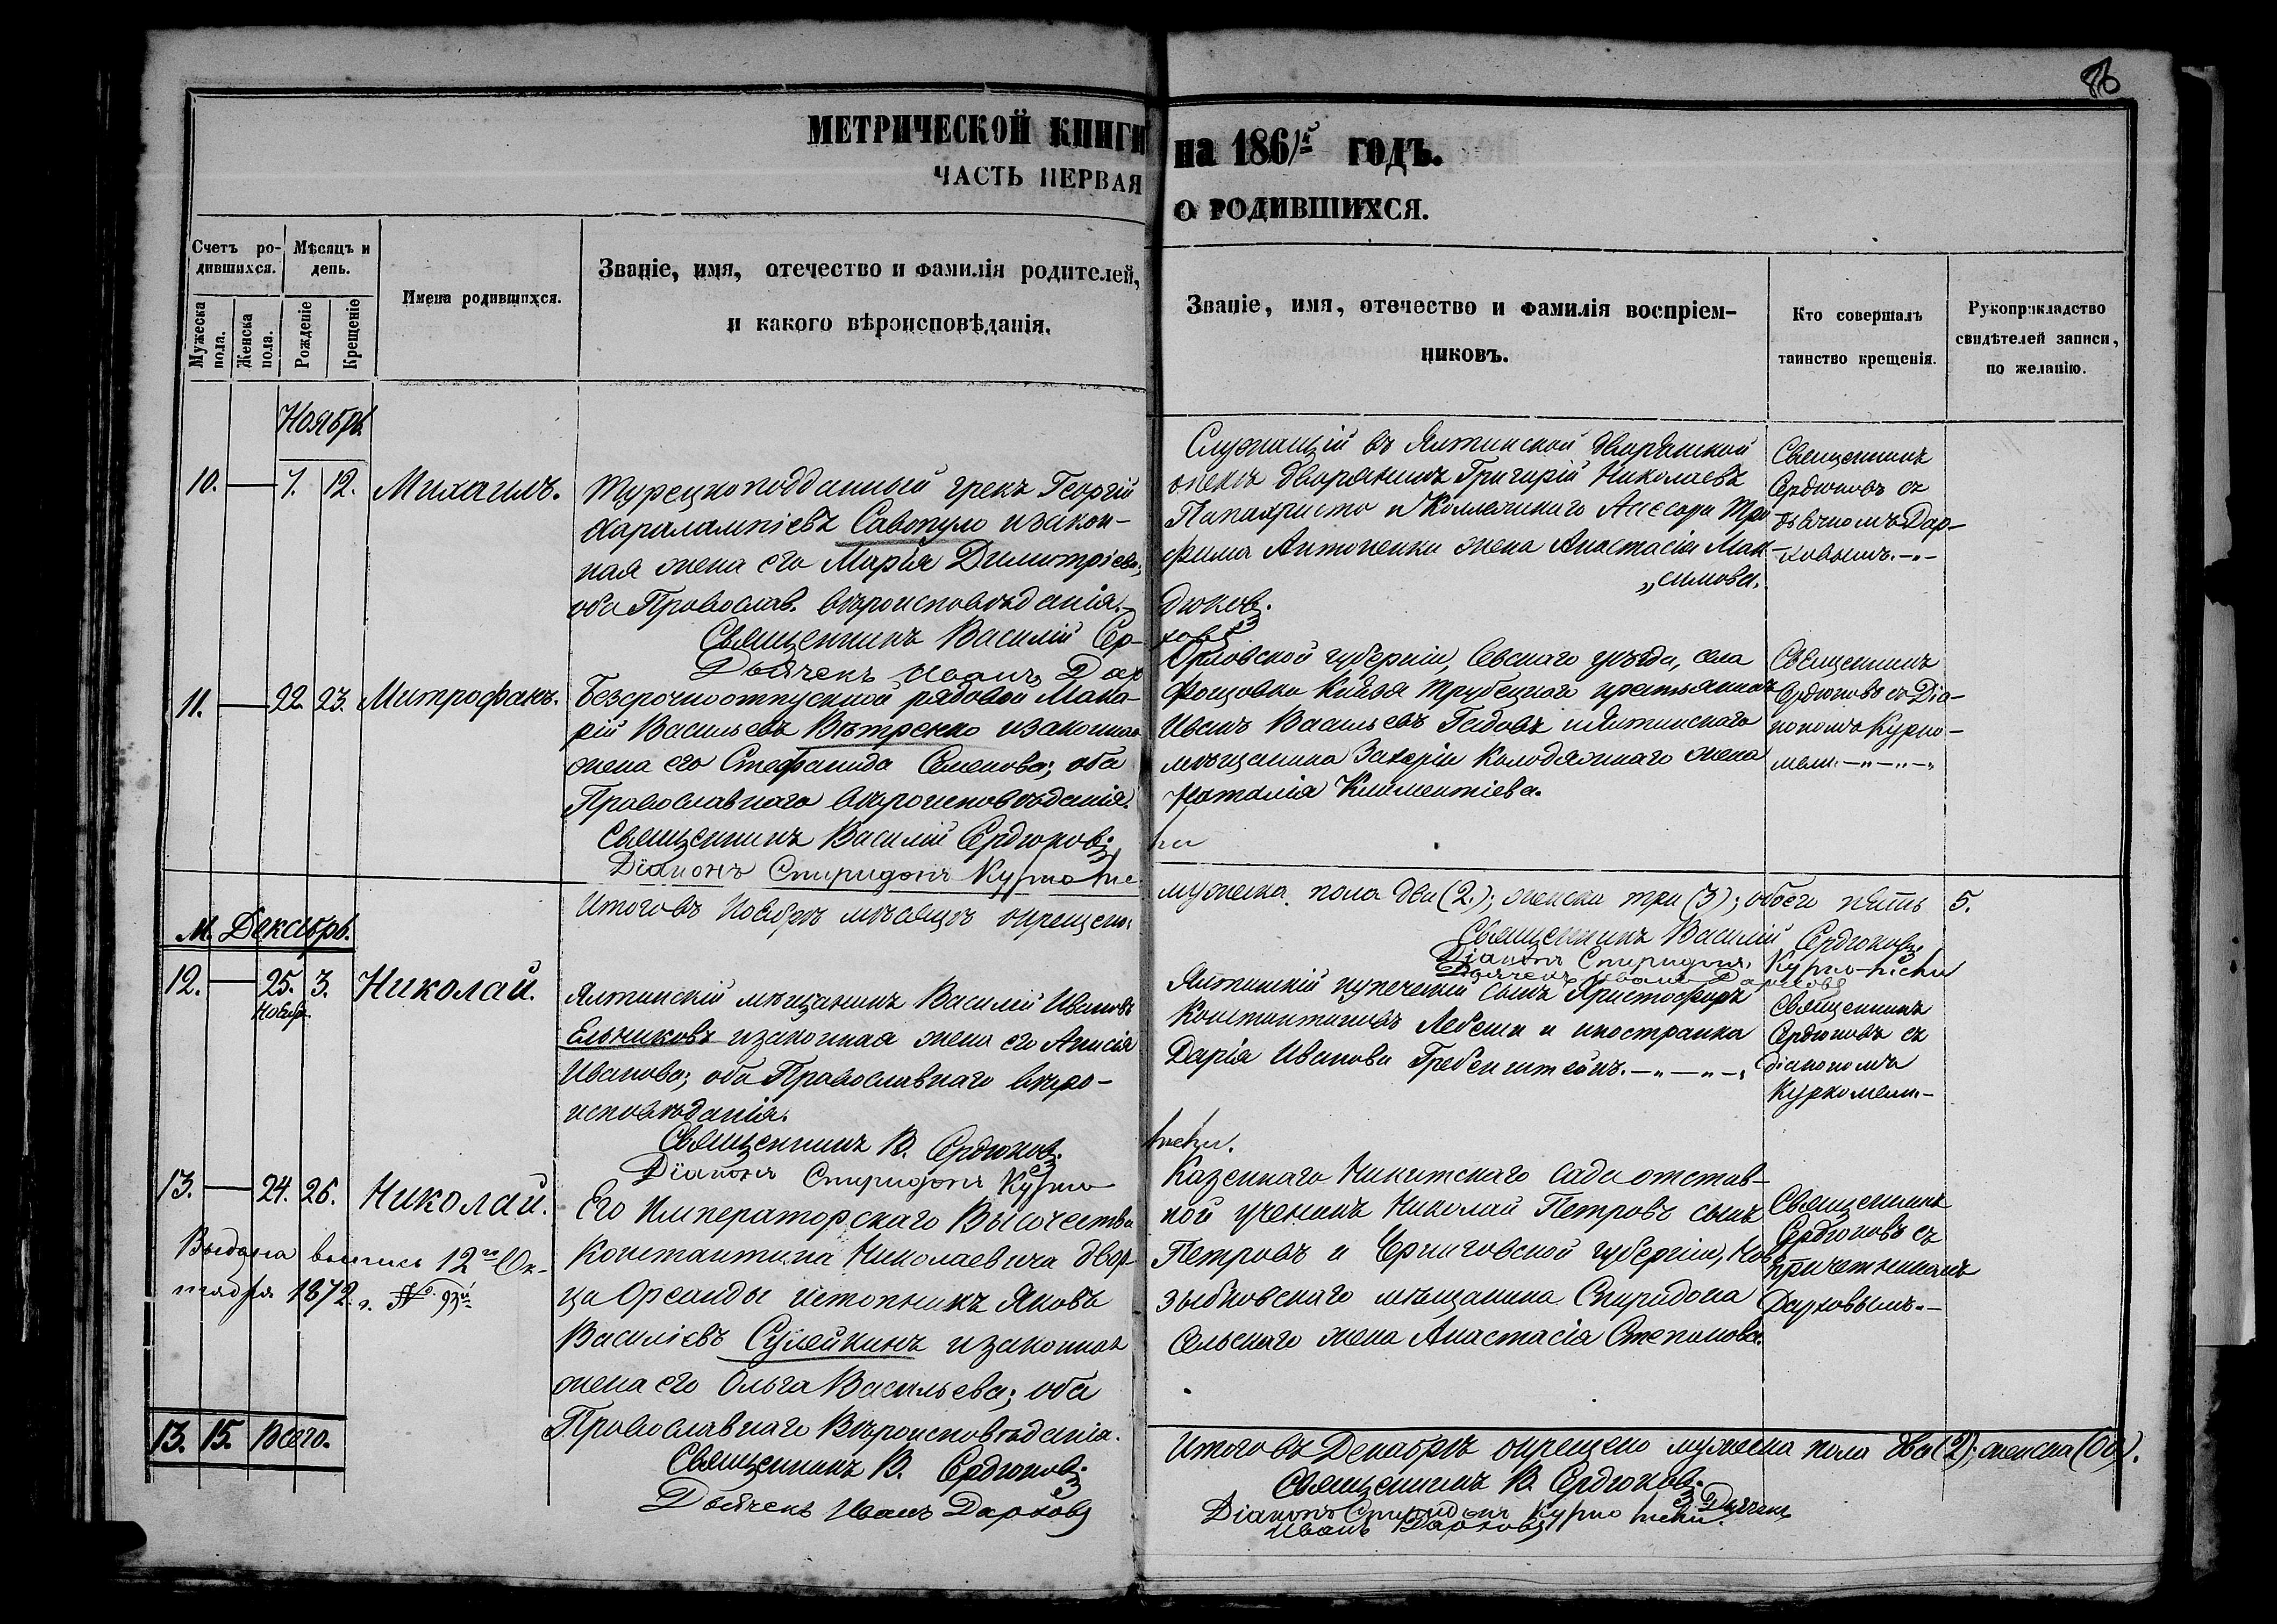 86
МЕТРИЧЕСКОЙ КНИГИ на 1861й годъ.
ЧАСТЬ ПЕРВАЯ О РОДИВШИХСЯ.
Счетъ ро-
дившихся.
Мужеска пола.
Женска пола.
Мѣсяцъ и
день.
Рожденіе
Крещеніе
Имена родившихся.
Званіе, имя, отечество и фамилія родителей,
и какого вѣроисповѣданія.
Званіе, имя, отечество и фамилія воспріем-
никовъ.
Кто совершалъ
таинство крещенія.
Рукоприкладство
свидѣтелей записи,
по желанію.
Ноябрь
10. — 7. 12. Михаилъ.
Турецкоподданный грекъ Георгій
Харалампіевъ Савопуло и закон-
ная жена его Марія Димитріева,
оба Православ. вѣроисповѣданія.
Священникъ Василій Сер-
дюковъ.
Дьячекъ Иванъ Дар
ховъ
Служащій въ Ялтинской дворянской
опекѣ дворянинъ Григорій Николаевъ
Папахристо и Коллежскаго Ассесора Тро
фима Антоненки жена Анастасія Мак-
„симова.
Священникъ
Сердюковъ съ
дьячкомъ Дар-
ховымъ.
11. — 22. 23. Митрофанъ.
Безсрочноотпускной рядовой Мака-
рій Васильевъ Вѣтренко и законная
жена его Стефанида Семенова; оба
Православнаго вѣроисповѣданія.
Священникъ Василій Сердюковъ
Діаконъ Спиридонъ Курко
Орловской губерніи, Севскаго уѣзда, села
князя Трубецкаго крестьянинъ
Иванъ Васильевъ и Ялтинскаго
мѣщанина Захарія Колодяжнаго жена
Наталія Климентіева.
Священникъ
Сердюковъ съ Діа-
кономъ Курко-
мели
Итого въ Ноябрѣ мѣсяцѣ окрещено: мужеска пола два (2); женска три (3); обоего пять 5.
Священникъ Василій Сердюковъ
Діаконъ Спиридонъ Курко-мели
Дьячекъ Иванъ Дарховъ
М. Декабрь.
12. — 25. 3. Николай.
Ноябр.
Ялтинскій мѣщанинъ Василій Ивановъ
Ельниковъ и законная жена его Анисія
Иванова; оба Православнаго вѣро-
исповѣданія.
Священникъ В. Сердюковъ.
Діаконъ Спиридонъ Курко
мели.
Ялтинскій купеческій сынъ Христофоръ
Константиновъ и иностранка
Дарія Иванова Гребенштейнъ.
Священникъ
Сердюковъ съ
діакономъ
Куркомели.
13. — 24. 26. Николай.
Выдана выпись 12го Ок-
тября 1872 г. № 93й
Его Императорскаго Высочества
Константина Николаевича двор-
ца Ореанды истопникъ Яковъ
Василіевъ Сулейкинъ и законная
жена его Ольга Васильева; оба
Православнаго Вѣроисповѣданія.
Священникъ В. Сердюковъ
Дьячекъ Иванъ Дарховъ
Казеннаго Никитскаго сада отстав-
ной ученикъ Николай Петровъ сынъ
Петровъ и Черниговской губерніи, Ново
зыбковскаго мѣщанина Спиридона
Сельскаго жена Анастасія Степанова.
Священникъ
Сердюковъ съ
причетникомъ
Дарховымъ.
13. 15. Всего.
Итого въ Декабрѣ окрещено мужеска пола два (2); женска (00).
Священникъ В. Сердюковъ.
Діаконъ Спиридонъ Курко мели. Дьячекъ
Иванъ Дарховъ